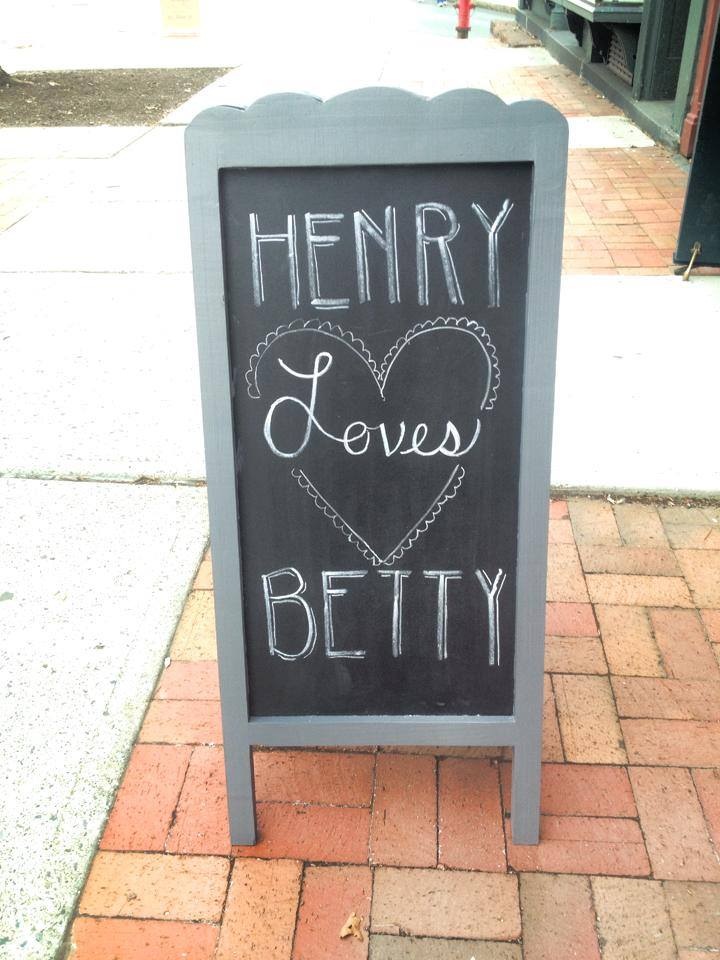 HENRY
Loves
BETTY